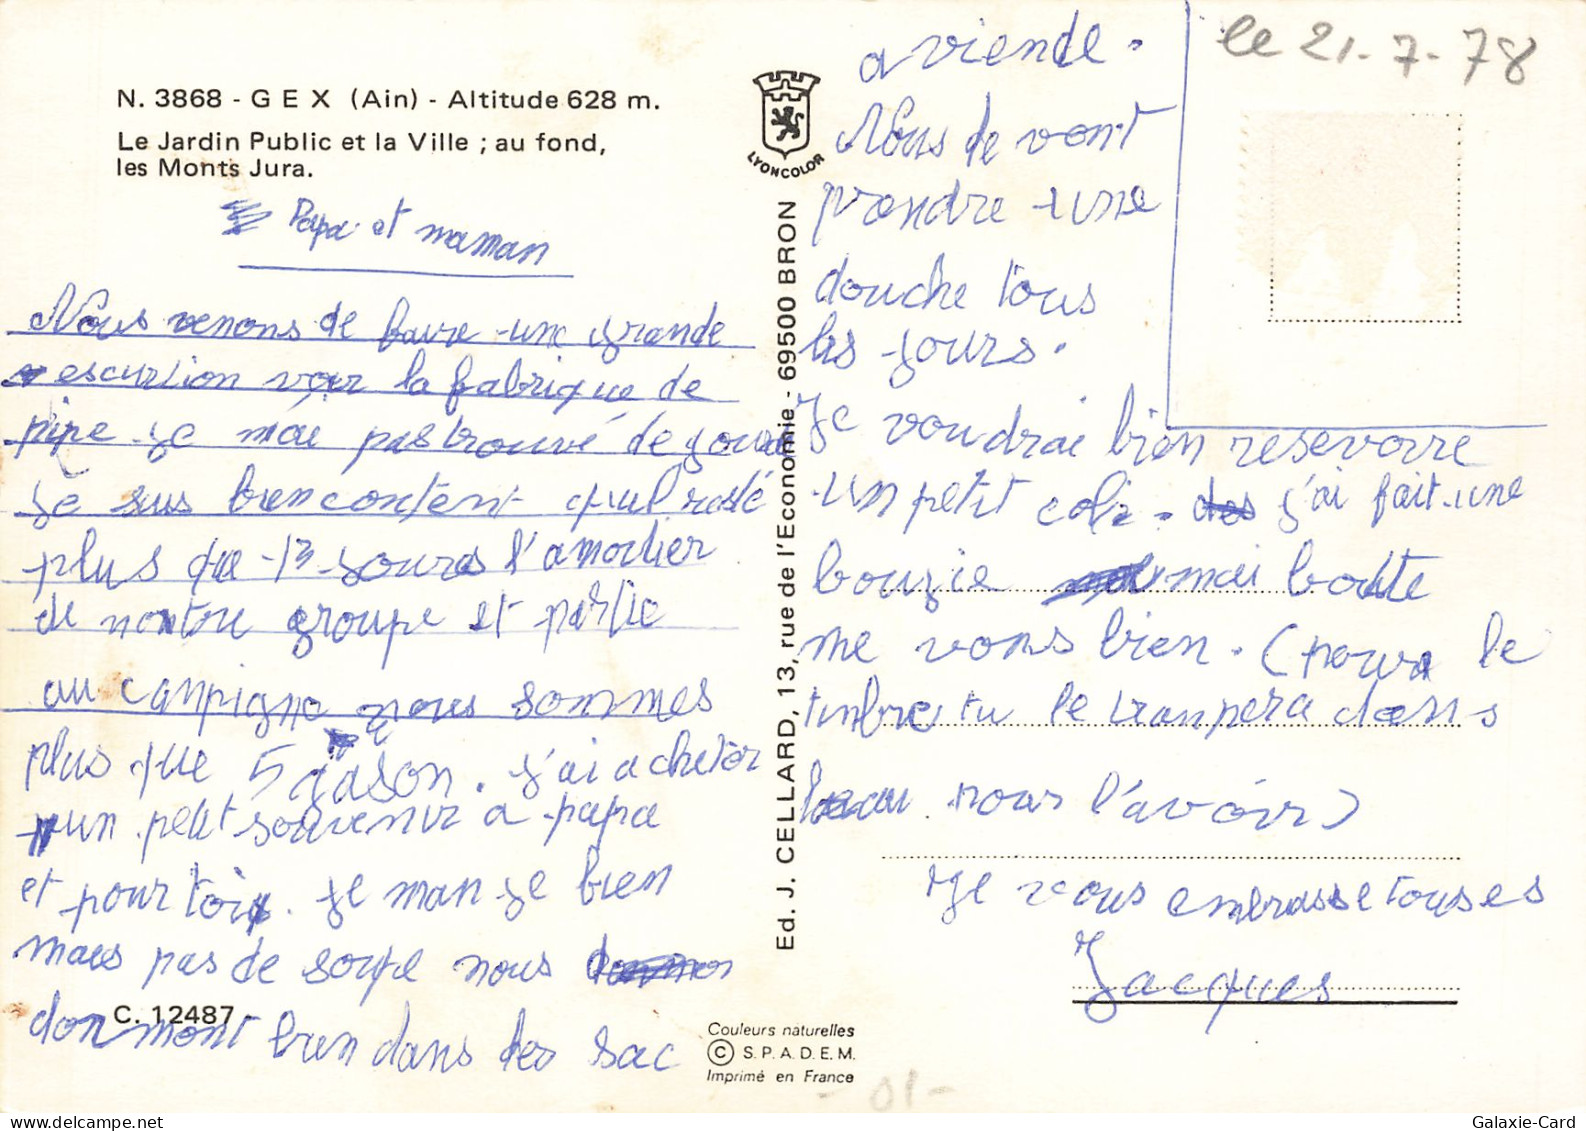 N. 3868 - GEX (Ain) - Altitude 628 m.
Le Jardin Public et la Ville ; au fond,
les Monts Jura.
Papa et maman
Nous venons de faire une grande
escurtion voir la fabrique de
pipe je mai pas trouvé de joue
je sus bien content qu'il resté
plus que 13 jours l'amortier
de notre groupe et partie
au canpigne nous sommes
plus que 5 gason. j'ai acheter
un petit souvenir a papa
et pour toi. je manje bien
mais pas de soupe nous
donmont bien dans des sac
C. 12487
a viende.
Nous de vont
prendre une
douche tous
les jours.
Je voudrai bien resevoire
un petit coli. j'ai fait une
bougie mai boitte
me vons bien. (pour le
tinbre tu le tranpera dans
leau nous l'avoir)
Je vous embrasse touses
Jacques
le 21-7-78
LYONCOLOR
Ed. J. CELLARD, 13, rue de l'Economie - 69500 BRON
Couleurs naturelles
© S.P.A.D.E.M.
Imprimé en France
- 01 -
Galaxie-Card